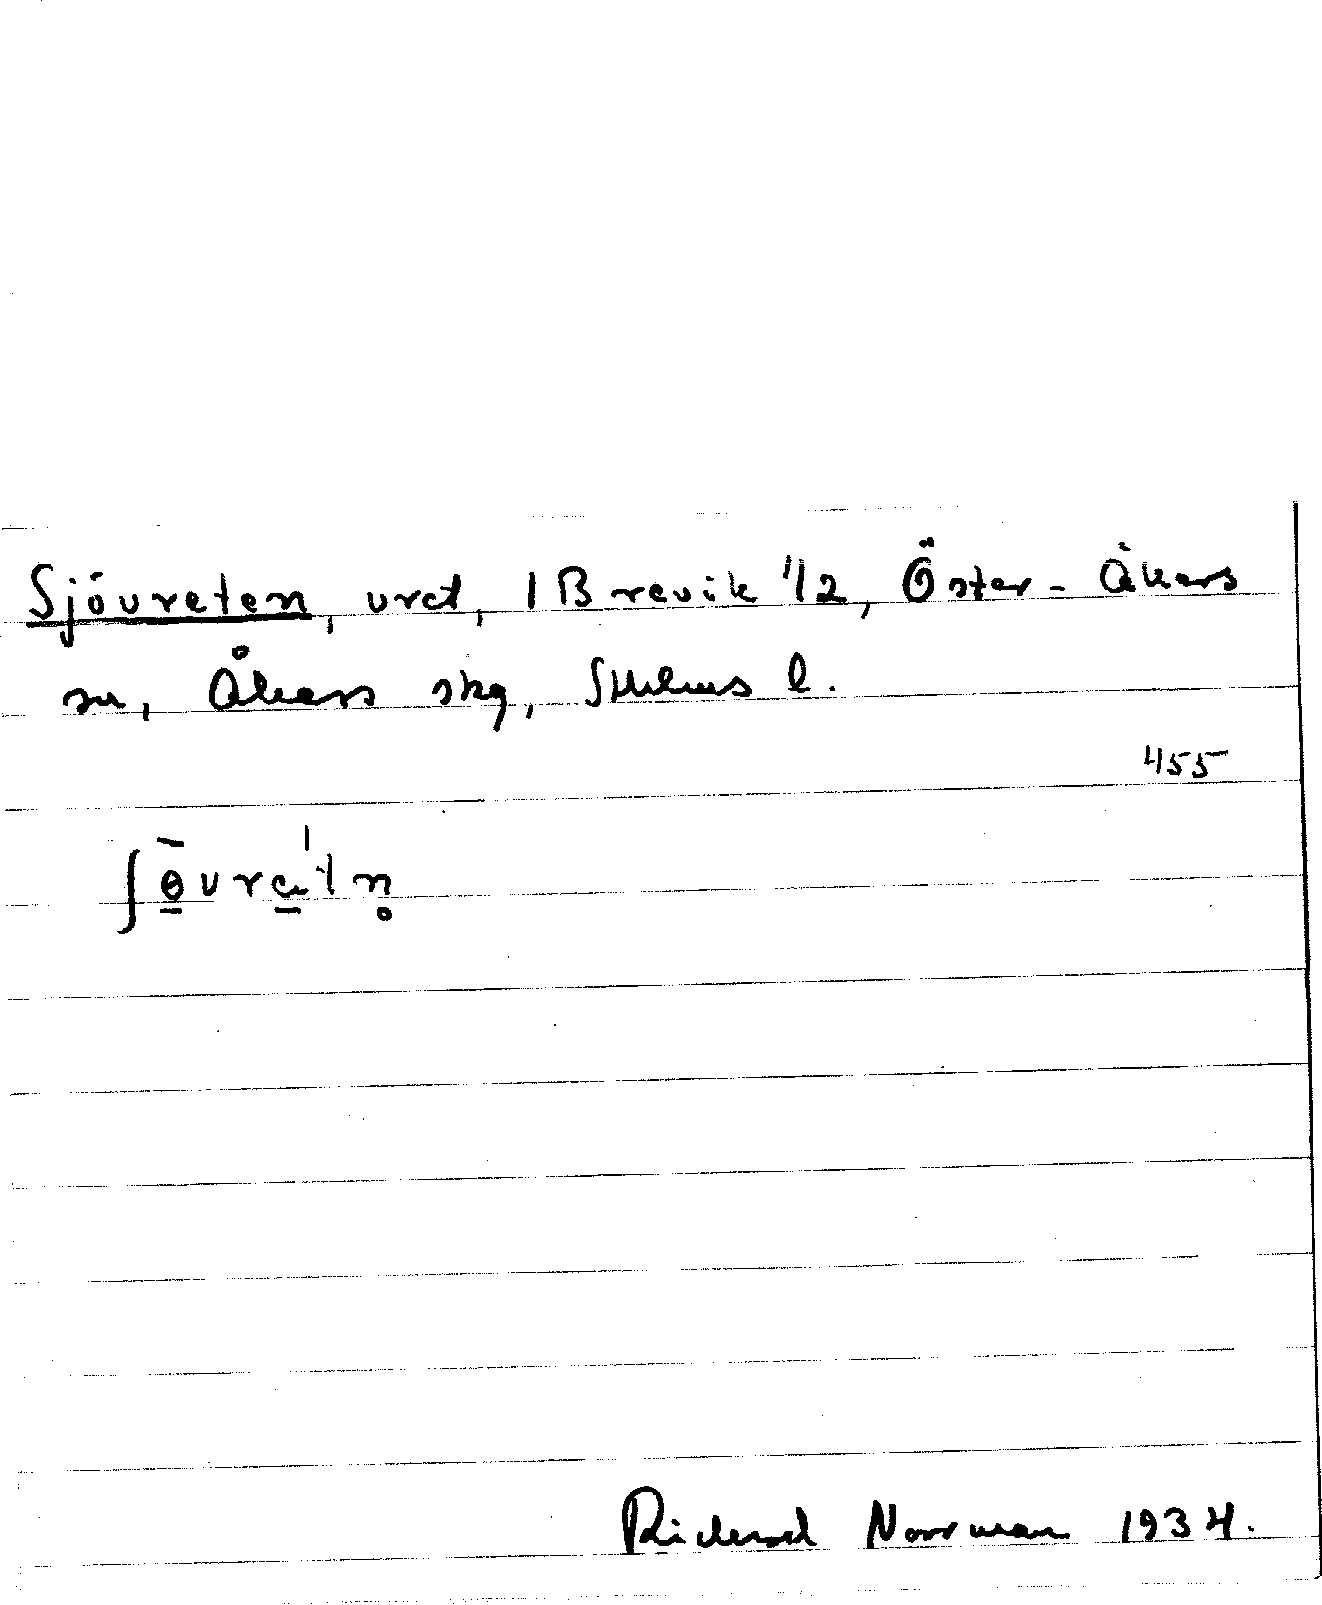 Sjövreten, vret, 1 Brevik 1/2, Öster-Åkers
sn, Åkers skg, Sthlms l.
455
ʃɵ̠̄vræ̠'tn̥
Richard Norrman 1934.